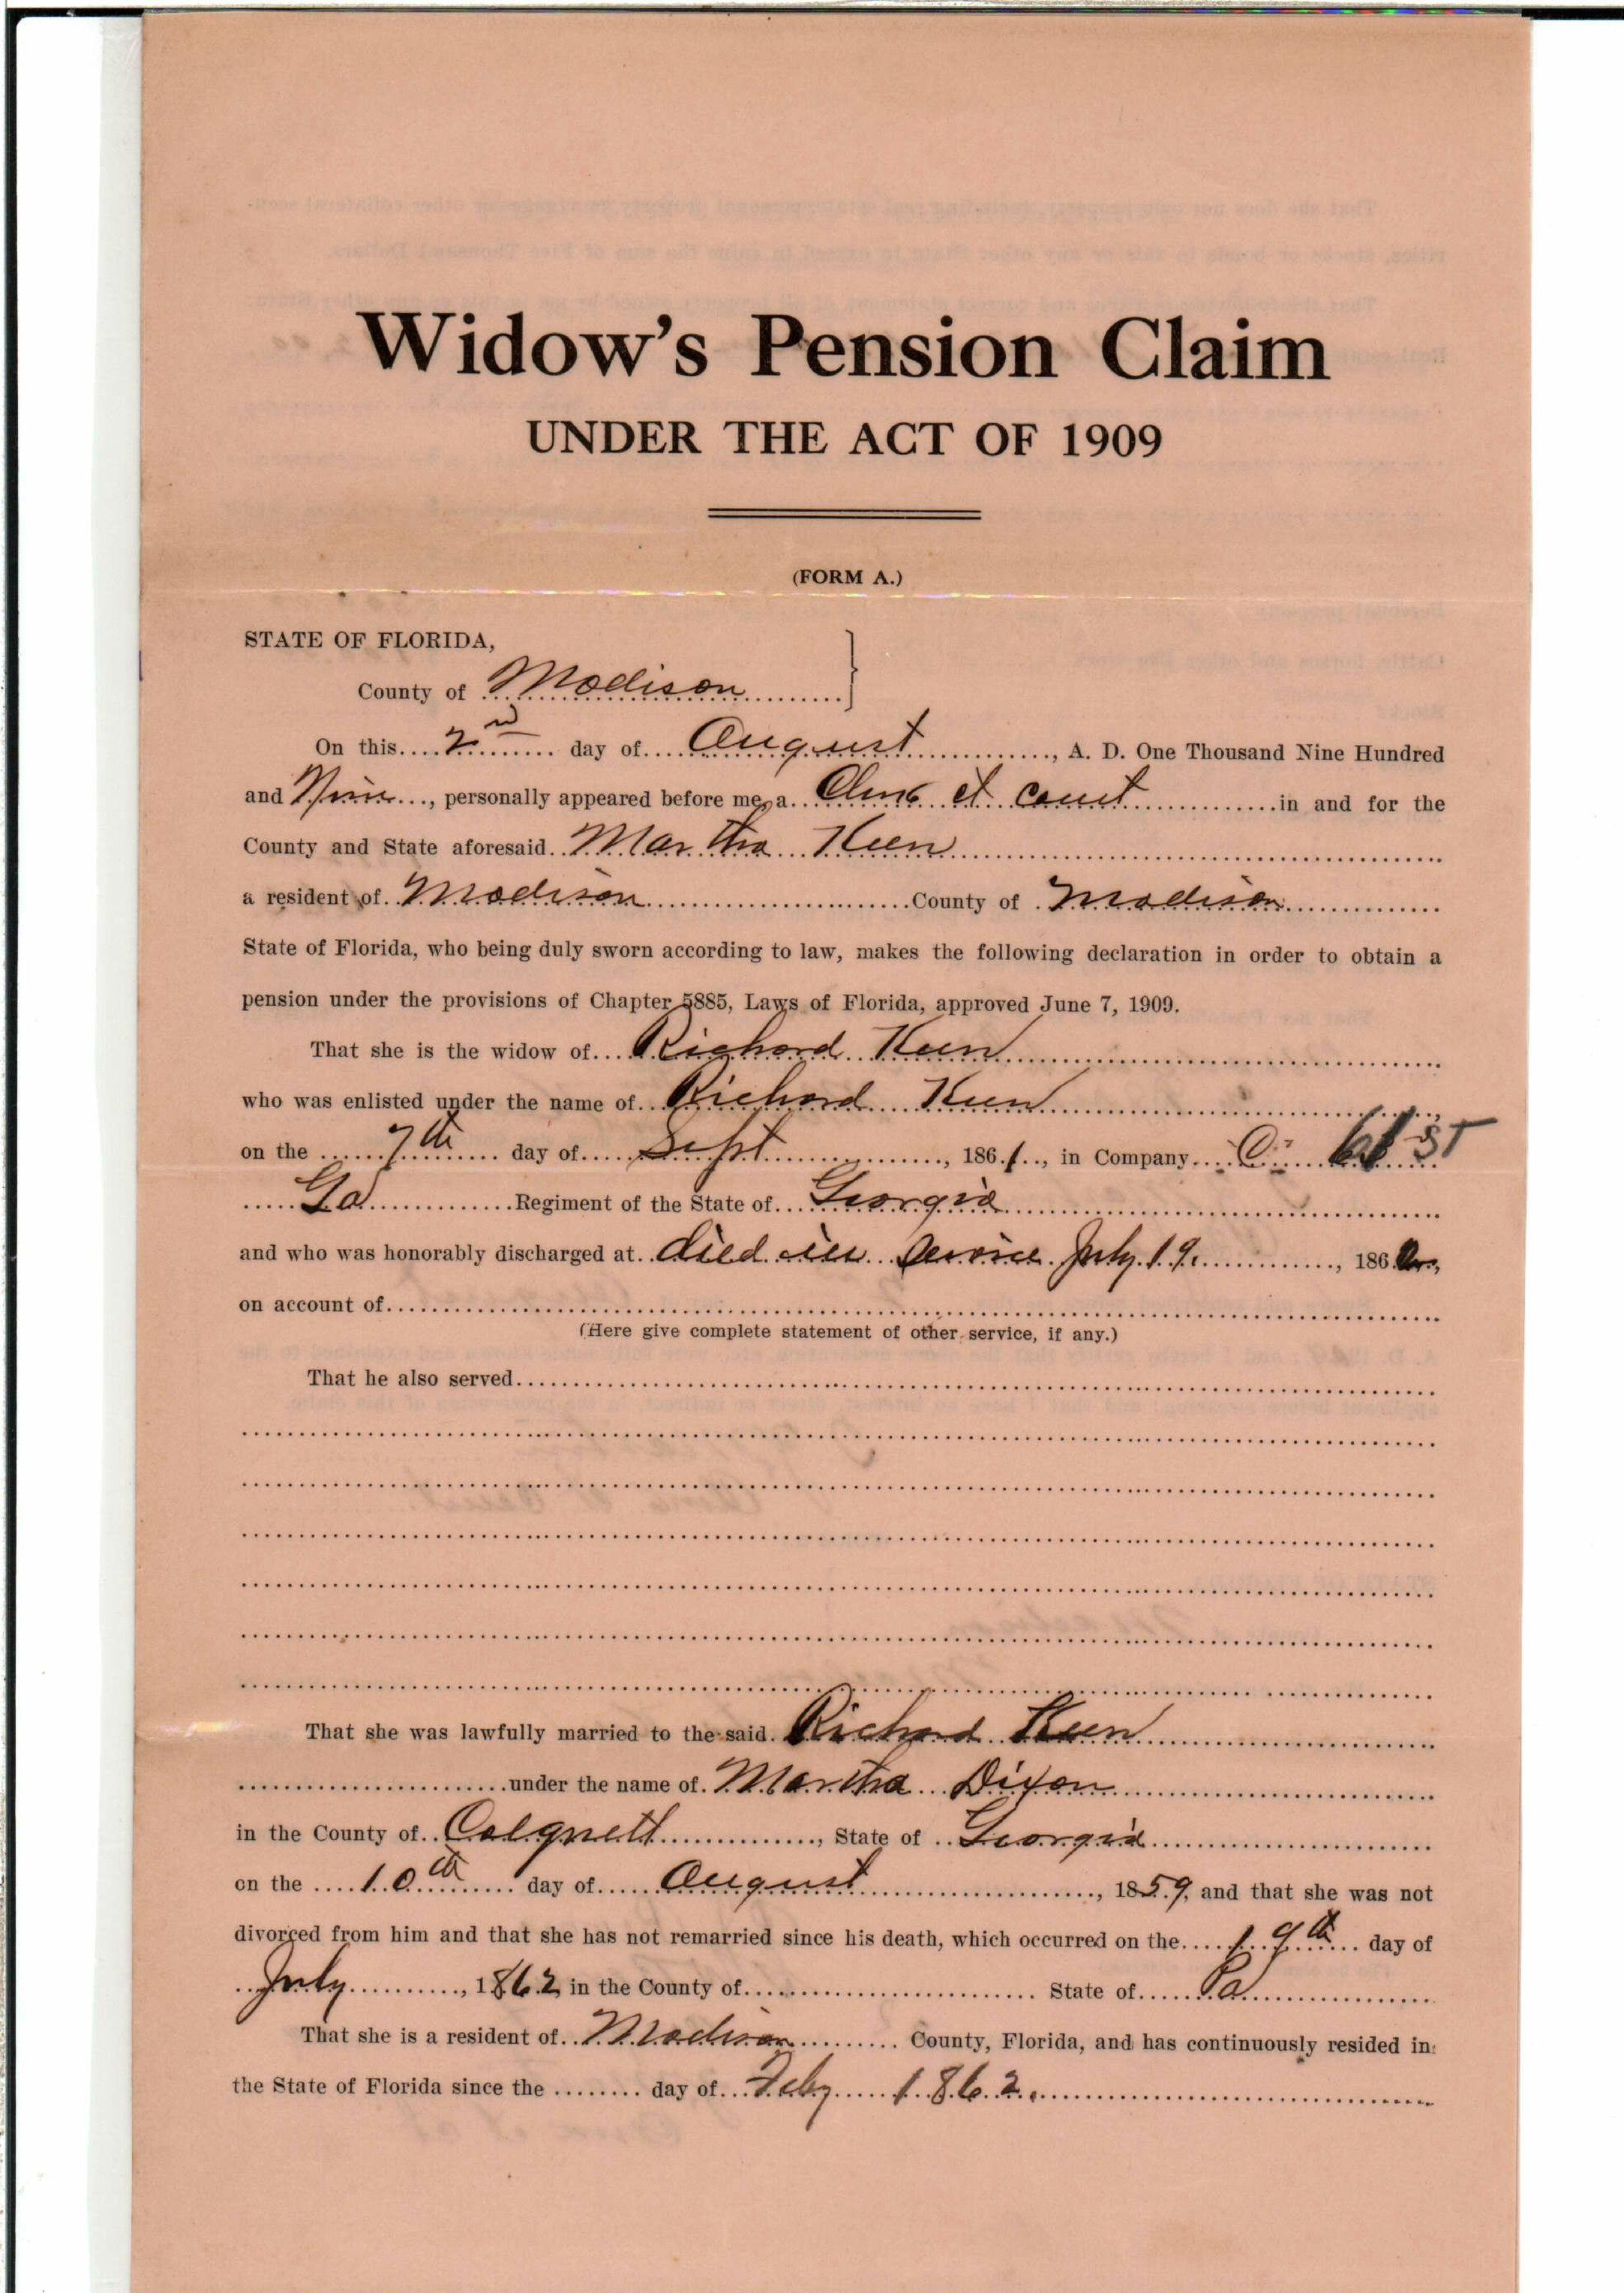 Widow's Pension Claim
UNDER THE ACT OF 1909
(FORM A.)
STATE OF FLORIDA,
County of Madison
On this 2nd day of August, A. D. One Thousand Nine Hundred
and Nine, personally appeared before me, a Clerk ct court in and for the
County and State aforesaid Martha Keen
a resident of Madison County of Madison
State of Florida, who being duly sworn according to law, makes the following declaration in order to obtain a
pension under the provisions of Chapter 5885, Laws of Florida, approved June 7, 1909.
That she is the widow of Richard Keen
who was enlisted under the name of Richard Keen
on the 7th day of Sept, 1861, in Company C 61st
Ga Regiment of the State of Georgia
and who was honorably discharged at died in service July 19, 1862,
on account of
(Here give complete statement of other service, if any.)
That he also served
That she was lawfully married to the said Richard Keen
under the name of Martha Dixon
in the County of Colquett, State of Georgia
on the 10th day of August, 1859, and that she was not
divorced from him and that she has not remarried since his death, which occurred on the 19th day of
July, 1862 in the County of State of
That she is a resident of Madison County, Florida, and has continuously resided in
the State of Florida since the day of Feby 1862.